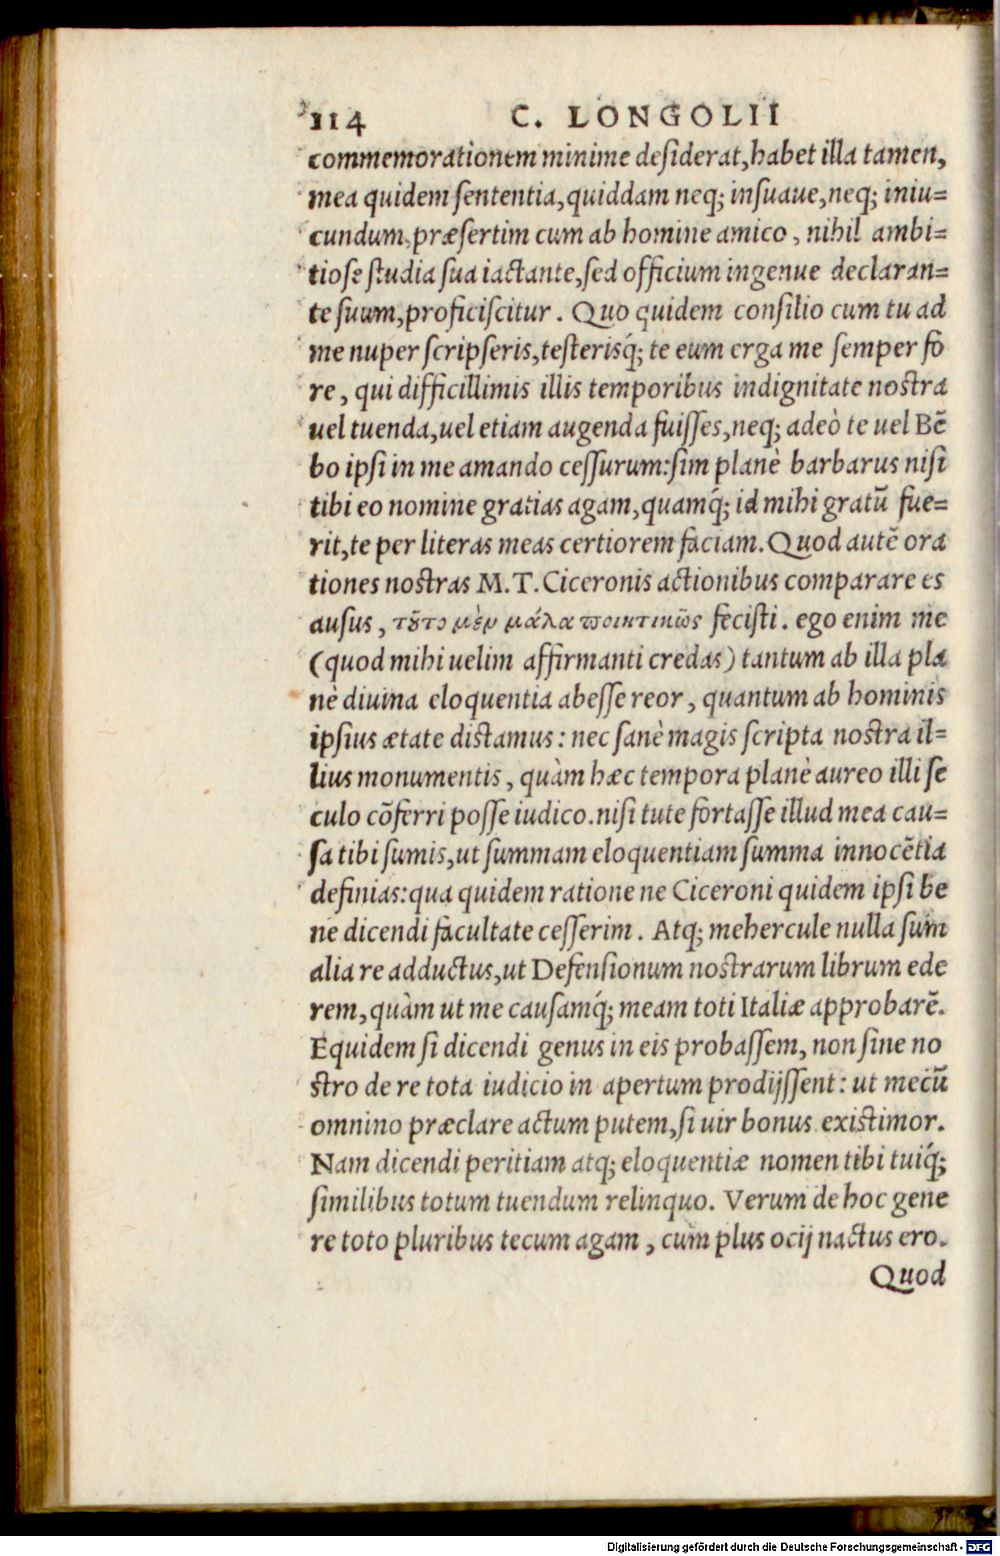 114 C. LONGOLII
commemorationem minime desiderat, habet illa tamen,
mea quidem sententia, quiddam neq; insuaue, neq; iniu=
cundum, præsertim cum ab homine amico, nihil ambi=
tiose studia sua iactante, sed officium ingenue declaran=
te suum, proficiscitur. Quo quidem consilio cum tu ad
me nuper scripseris, testerisq́; te eum erga me semper fo
re, qui difficillimis illis temporibus in dignitate nostra
uel tuenda, uel etiam augenda fuisses, neq; adeò te uel Bē
bo ipsi in me amando cessurum: sim planè barbarus nisi
tibi eo nomine gratias agam, quamq́; id mihi gratū fue=
rit, te per literas meas certiorem faciam. Quod autē ora
tiones nostras M. T. Ciceronis actionibus comparare es
ausus, τȣ̃το μὲν μάλα ποιητικῶς fecisti. ego enim me
(quod mihi uelim affirmanti credas) tantum ab illa pla
nè diuina eloquentia abesse reor, quantum ab hominis
ipsius ætate distamus: nec sanè magis scripta nostra il=
lius monumentis, quàm hæc tempora planè aureo illi se
culo cōferri posse iudico. nisi tute fortasse illud mea cau=
sa tibi sumis, ut summam eloquentiam summa innocētia
definias: qua quidem ratione ne Ciceroni quidem ipsi be
ne dicendi facultate cesserim. Atq; mehercule nulla sum
alia re adductus, ut Defensionum nostrarum librum ede
rem, quàm ut me causamq́; meam toti Italiæ approbarē.
Equidem si dicendi genus in eis probassem, non sine no
stro de re tota iudicio in apertum prodijssent: ut mecū
omnino præclare actum putem, si uir bonus existimor.
Nam dicendi peritiam atq; eloquentiæ nomen tibi tuiq́;
similibus totum tuendum relinquo. Verum de hoc gene
re toto pluribus tecum agam, cùm plus ocij nactus ero.
Quod
Digitalisierung gefördert durch die Deutsche Forschungsgemeinschaft - DFG